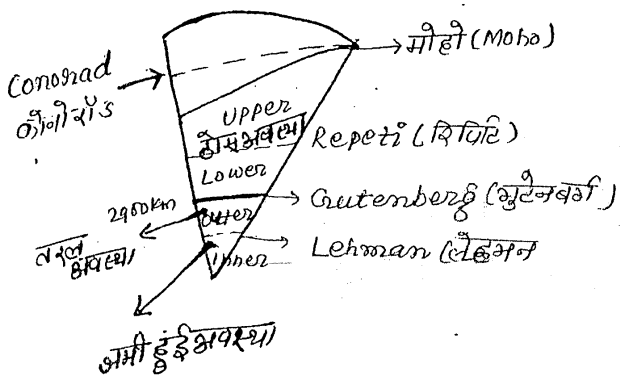 मोहो (Moho)
Conorad
कौनोरॉड
Upper
ठोस अवस्था
Repeti (रिपिटि)
Lower
2900km
Gutenberg (गुटेनबर्ग)
outer
तरल
अवस्था
Lehman (लेहमन
Inner
जमी हुंई अवस्था